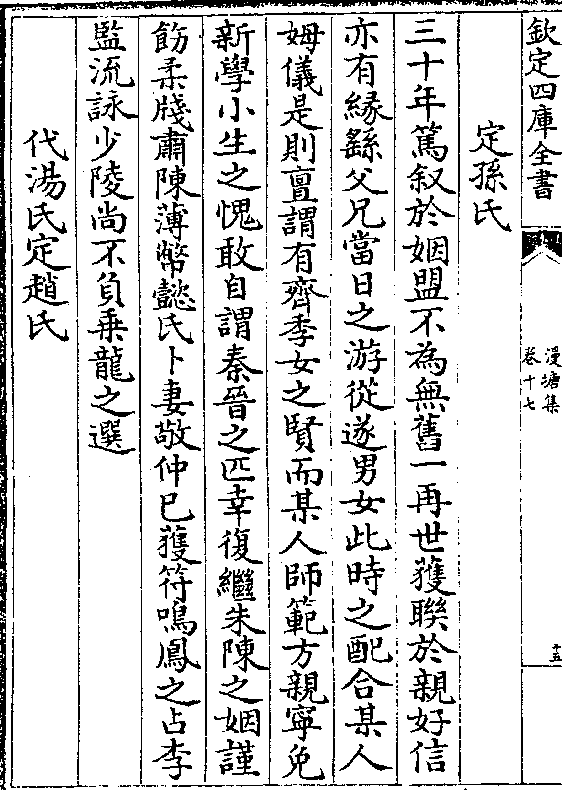 欽定四庫全書
漫塘集
卷十七
十五
定孫氏
三十年篤叙於姻盟不為無舊一再世獲聯於親好信
亦有緣繇父兄當日之游從遂男女此時之配合某人
姆儀是則亶謂有齊季女之賢而某人師範方親寧免
新學小生之愧敢自謂秦晉之匹幸復繼朱陳之姻謹
飭柔牋肅陳薄幣懿氏卜妻敬仲已獲符鳴鳳之占李
監流詠少陵尚不負乗龍之選
代湯氏定趙氏